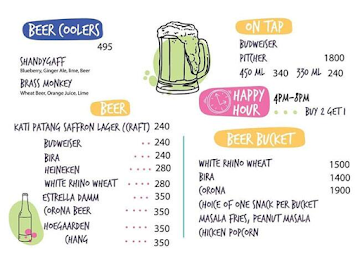 BEER COOLERS
495
SHANDYGAFF
Blueberry, Ginger Ale, lime, Beer
BRASS MONKEY
Wheat Beer, Orange Juice, Lime
BEER
KATI PATANG SAFFRON LAGER (CRAFT) 240
BUDWEISER 240
BIRA 240
HEINEKEN 280
WHITE RHINO WHEAT 280
ESTRELLA DAMM 350
CORONA BEER 350
HOEGAARDEN 350
CHANG 350
ON TAP
BUDWEISER
PITCHER 1800
450 ML 240 330 ML 240
HAPPY HOUR
4PM-8PM
BUY 2 GET 1
BEER BUCKET
WHITE RHINO WHEAT 1500
BIRA 1400
CORONA 1900
CHOICE OF ONE SNACK PER BUCKET
MASALA FRIES, PEANUT MASALA
CHICKEN POPCORN